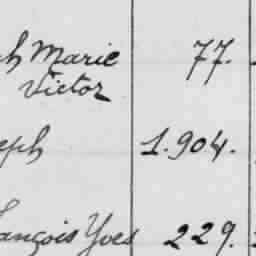 ph Marie 77.
Victor
eph 1.904.
ançois Yves 229.